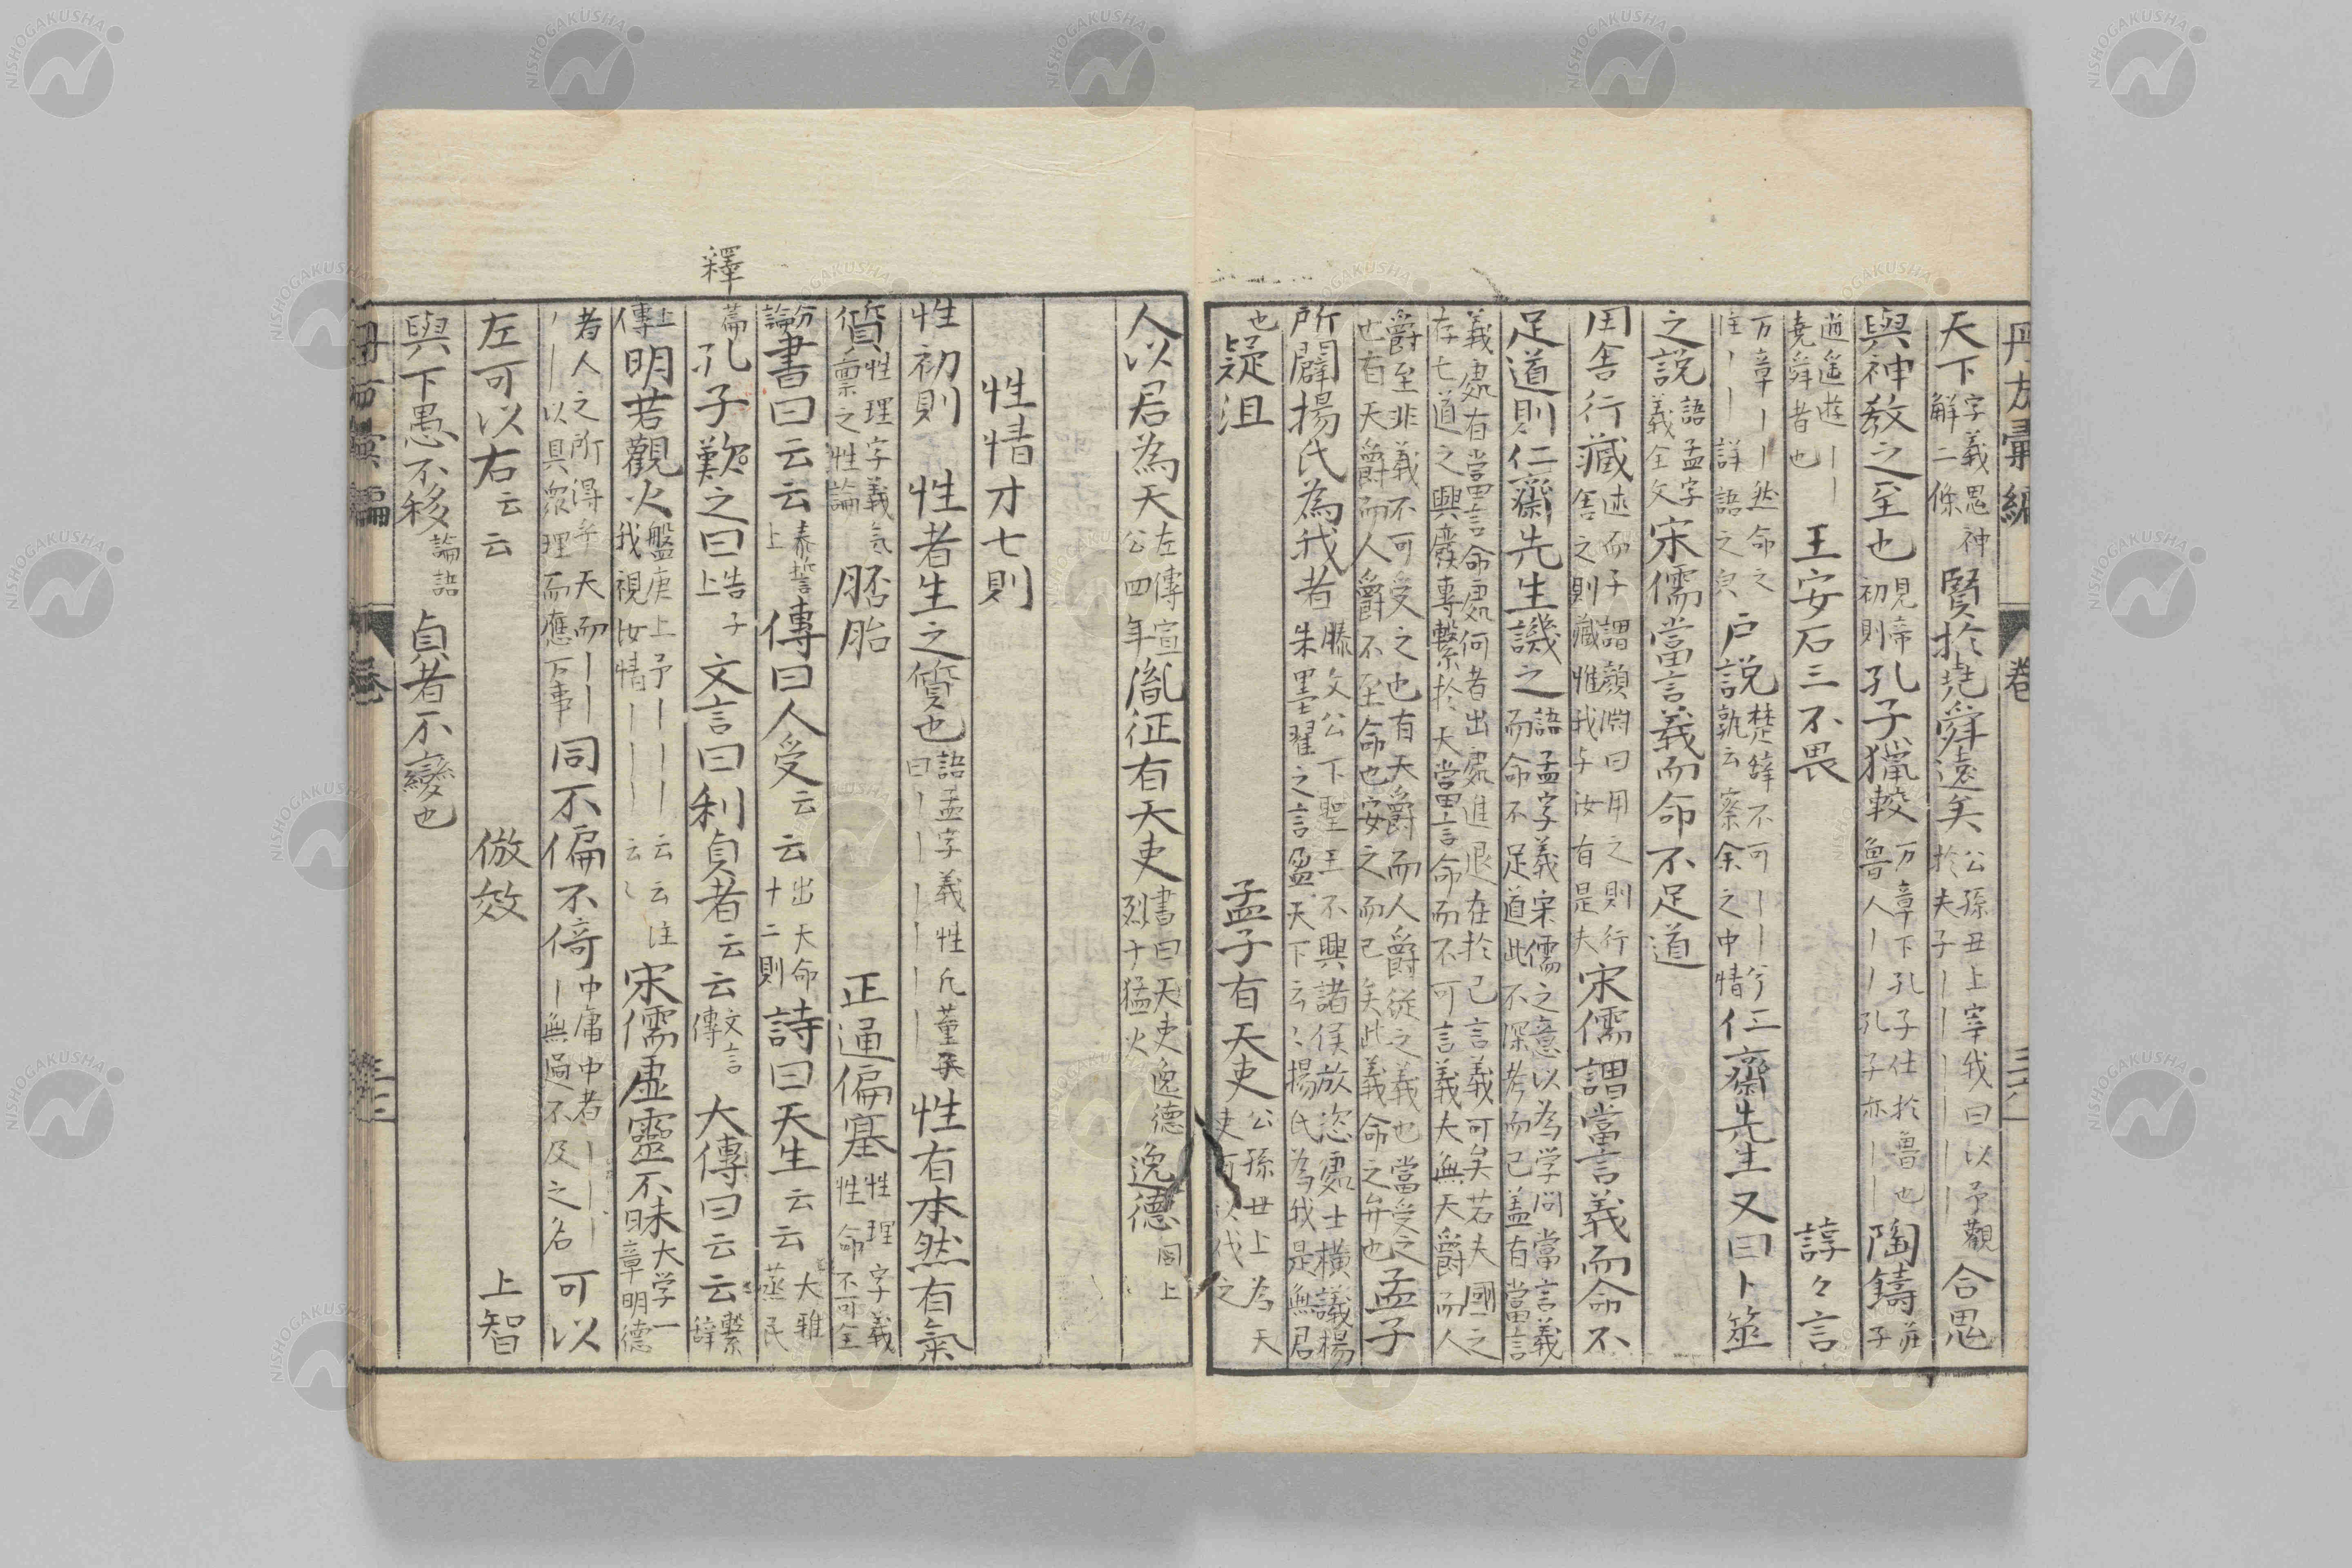 天下字義鬼神解二條賢於堯舜遠矣公孫丑上宰我曰以予觀於夫子｜｜｜｜｜｜合鬼
與神教之至也見帝初則孔子獵較万章下孔子仕於魯也魯人｜｜孔子亦｜｜陶鋳莊子
逍遙遊｜｜堯舜者也王安石三不畏諄々言
万章｜｜然命之注｜｜詳語之皃戸説楚辞不可｜｜｜兮孰云察余之中情仁齋先生又曰卜筮
之説語孟字義全文宋儒當言義而命不足道
用舎行藏述而子謂顔淵曰用之則行舎之則藏惟我与汝有是夫宋儒謂當言義而命不
足道則仁齋先生譏之語孟字義宋儒之意以為学問當言義而命不足道此不深考而已盖有當言
義處有當言命處何者出處進退在於己言義可矣若夫國之存亡道之興廢專繋於天當言命而不可言義大無天爵而人
爵至非義不可受之也有天爵而人爵從之義也當受之也有天爵而人爵不至命也安之而已矣此義命之弁也孟子
所闢揚氏為我者滕文公下聖王不興諸侯放恣處士横議楊朱墨翟之言盈天下云〻揚氏為我是無君
也疑沮孟子有天吏公孫丑上為天吏可以伐之
人以君為天左傳宣公四年胤征有天吏書曰天吏逸德烈于猛火逸德同上
性情才七則
性初則性者生之質也語孟字義性凡董子曰｜｜｜｜｜性有本然有氣
質性理字義氣稟之性論胚胎正通偏塞性理字義性命不可全
分論書曰云云泰誓上傳曰人受云云出天命十二則詩曰天生云云大雅蒸民
釋
篇孔子歎之曰告子上文言曰利貞者云云文言傳大傳曰云云繋辞
上傳明若觀火盤庚上予｜｜｜云云注我視汝情｜｜｜云〻宋儒虚靈不昧大学一章明德
者人之所得乎天而｜｜｜｜以具衆理而應万事同不偏不倚中庸中者｜｜｜｜無過不及之名可以
左可以右云云倣效上智
與下愚不移論語貞者不變也